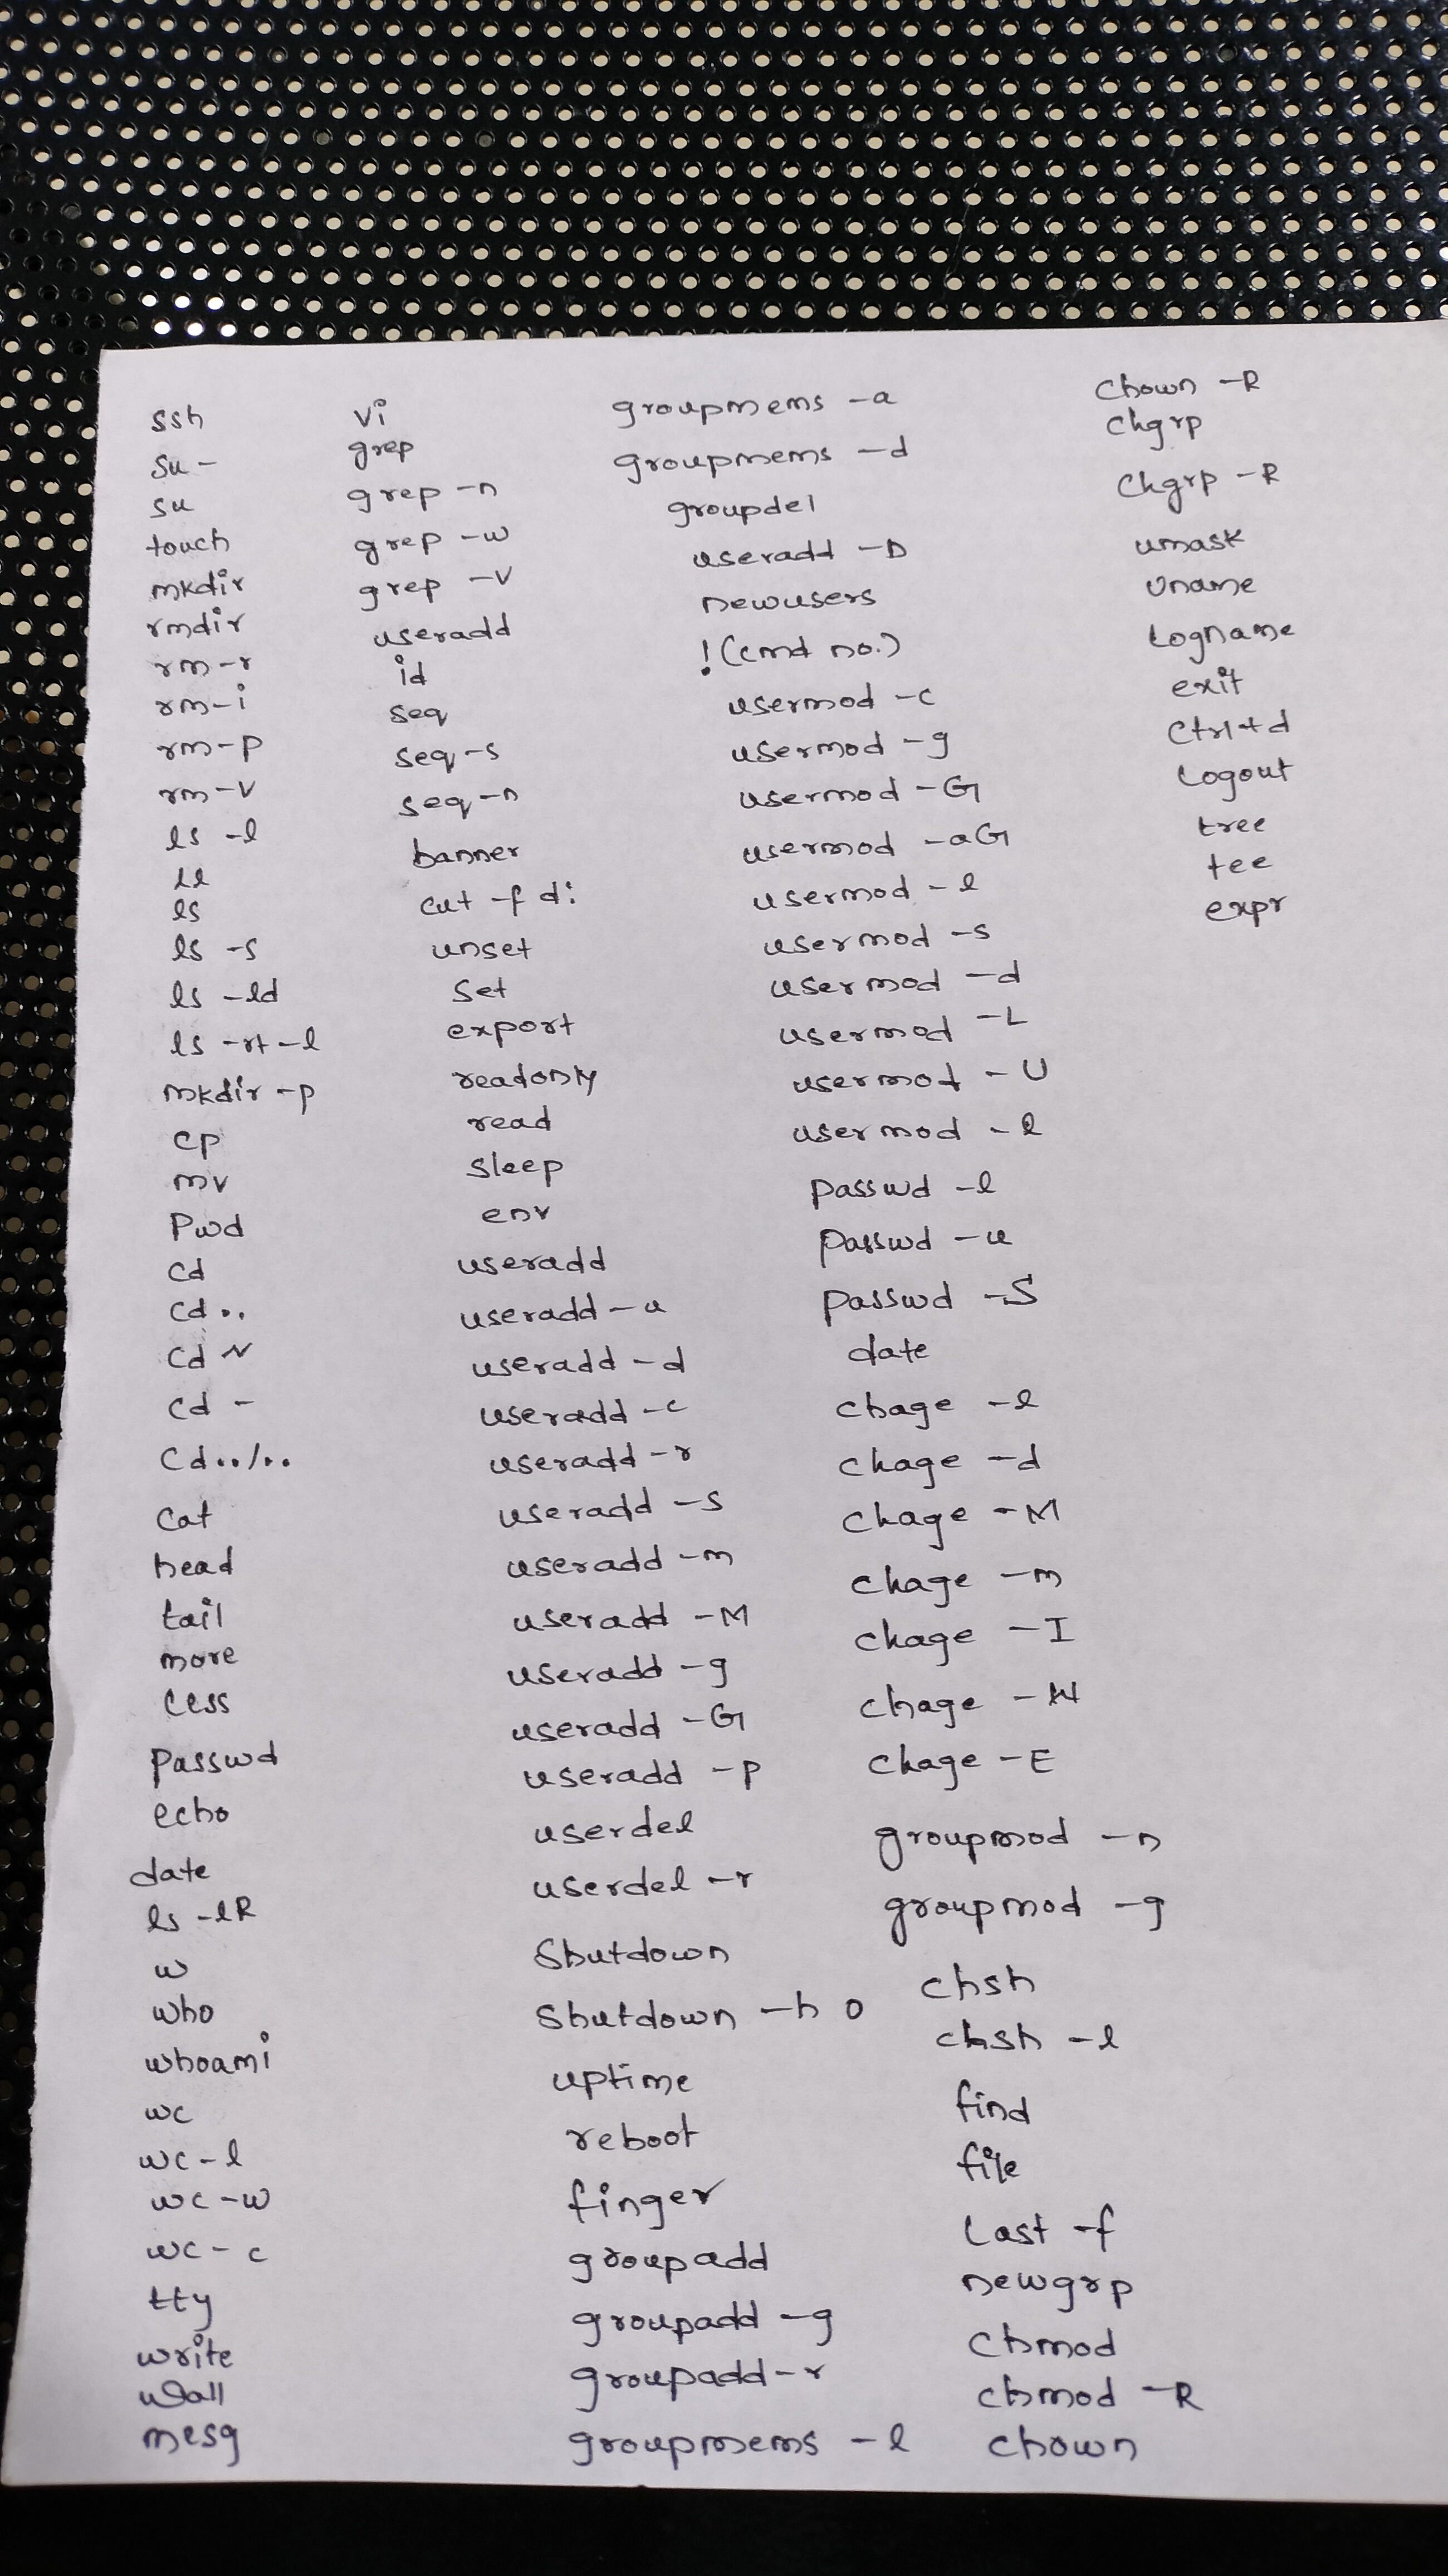 ssh
su -
su
touch
mkdir
rmdir
rm -r
rm -i
rm -p
rm -v
ls -l
ll
ls
ls -s
ls -ld
ls -rt -l
mkdir -p
cp
mv
Pwd
cd
cd ..
cd ~
cd -
cd ../..
cat
head
tail
more
less
passwd
echo
date
ls -lR
w
who
whoami
wc
wc -l
wc -w
wc - c
tty
write
wall
mesg
vi
grep
grep -n
grep -w
grep -v
useradd
id
seq
seq -s
seq -n
banner
cut -f d:
unset
set
export
readonly
read
sleep
env
useradd
useradd -u
useradd -d
useradd -c
useradd -r
useradd -s
useradd -m
useradd -M
useradd -g
useradd -G
useradd -p
userdel
userdel -r
Shutdown
Shutdown -h 0
uptime
reboot
finger
groupadd
groupadd -g
groupadd -r
groupmems -l
groupmems -a
groupmems -d
groupdel
useradd -D
newusers
!(cmd no.)
usermod -c
usermod -g
usermod -G
usermod -aG
usermod -l
usermod -s
usermod -d
usermod -L
usermod -U
usermod -l
passwd -l
passwd -u
passwd -S
date
chage -l
chage -d
chage -M
chage -m
chage -I
chage -W
chage -E
groupmod -n
groupmod -g
chsh
chsh -l
find
file
last -f
newgrp
chmod
chmod -R
chown
chown -R
chgrp
chgrp -R
umask
uname
logname
exit
ctrl+d
logout
tree
tee
expr